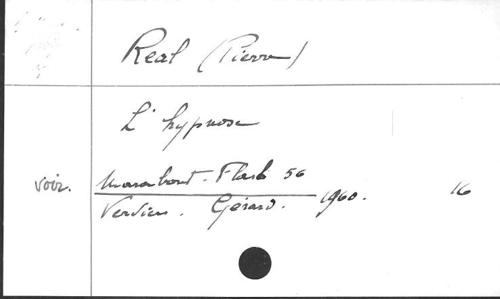 Real (Pierre)
L'hypnose
voir. Marabout-Flash 56
Verviers. Gérard. 1960. 16